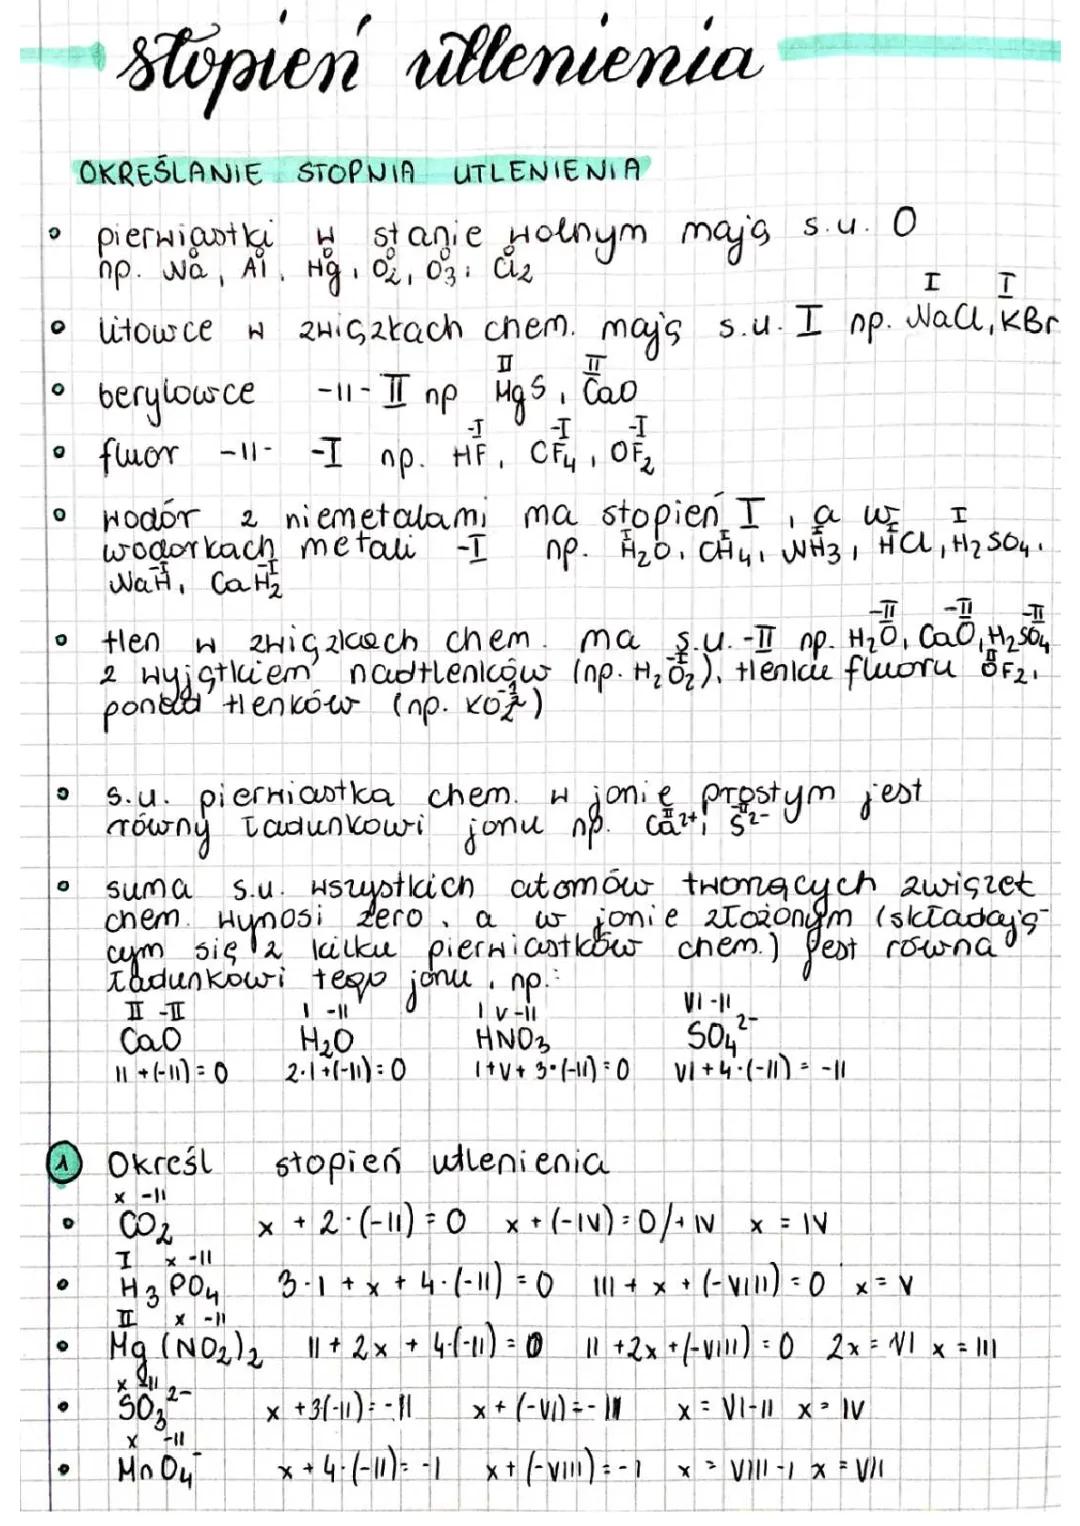 stopień utlenienia
OKREŚLANIE STOPNIA UTLENIENIA
• pierwiastki w stanie wolnym mają s.u. 0
0 0 0 0 0 0
np. Na, Al, Hg, O₂, O₃, Cl₂
I I
• litowce w związkach chem. mają s.u. I np. NaCl, KBr
II II
• berylowce -11- II np MgS, CaO
-I -I -I
• fluor -11- -I np. HF, CF₄, OF₂
• wodór z niemetalami ma stopień I, a w
I I I I I
wodorkach metali -I np. H₂O, CH₄, NH₃, HCl, H₂SO₄,
-I -I
NaH, CaH₂
-II -II -II
• tlen w związkach chem. ma s.u. -II np. H₂O, CaO, H₂SO₄
z wyjątkiem nadtlenków (np. H₂O₂), tlenku fluoru OF₂,
ponadtlenków (np. KO₂)
• s.u. pierwiastka chem. w jonie prostym jest
równy ładunkowi jonu np. Ca²⁺, S²⁻
• suma s.u. wszystkich atomów tworzących związek
chem. wynosi zero, a w jonie złożonym (składają-
cym się z kilku pierwiastków chem.) jest równa
ładunkowi tego jonu, np.:
II -II I -II I V -II VI -II
CaO H₂O HNO₃ SO₄²⁻
II + (-II) = 0 2·I + (-II) = 0 I + V + 3·(-II) = 0 VI + 4·(-II) = -II
1 Określ stopień utlenienia
x -II
• CO₂ x + 2·(-II) = 0 x + (-IV) = 0 /+ IV x = IV
I x -II
• H₃PO₄ 3·I + x + 4·(-II) = 0 III + x + (-VIII) = 0 x = V
II x -II
• Mg(NO₂)₂ II + 2x + 4·(-II) = 0 II + 2x + (-VIII) = 0 2x = VI x = III
x -II
• SO₃²⁻ x + 3(-II) = -II x + (-VI) = -II x = VI-II x = IV
x -II
• MnO₄⁻ x + 4·(-II) = -I x + (-VIII) = -I x = VIII-I x = VII